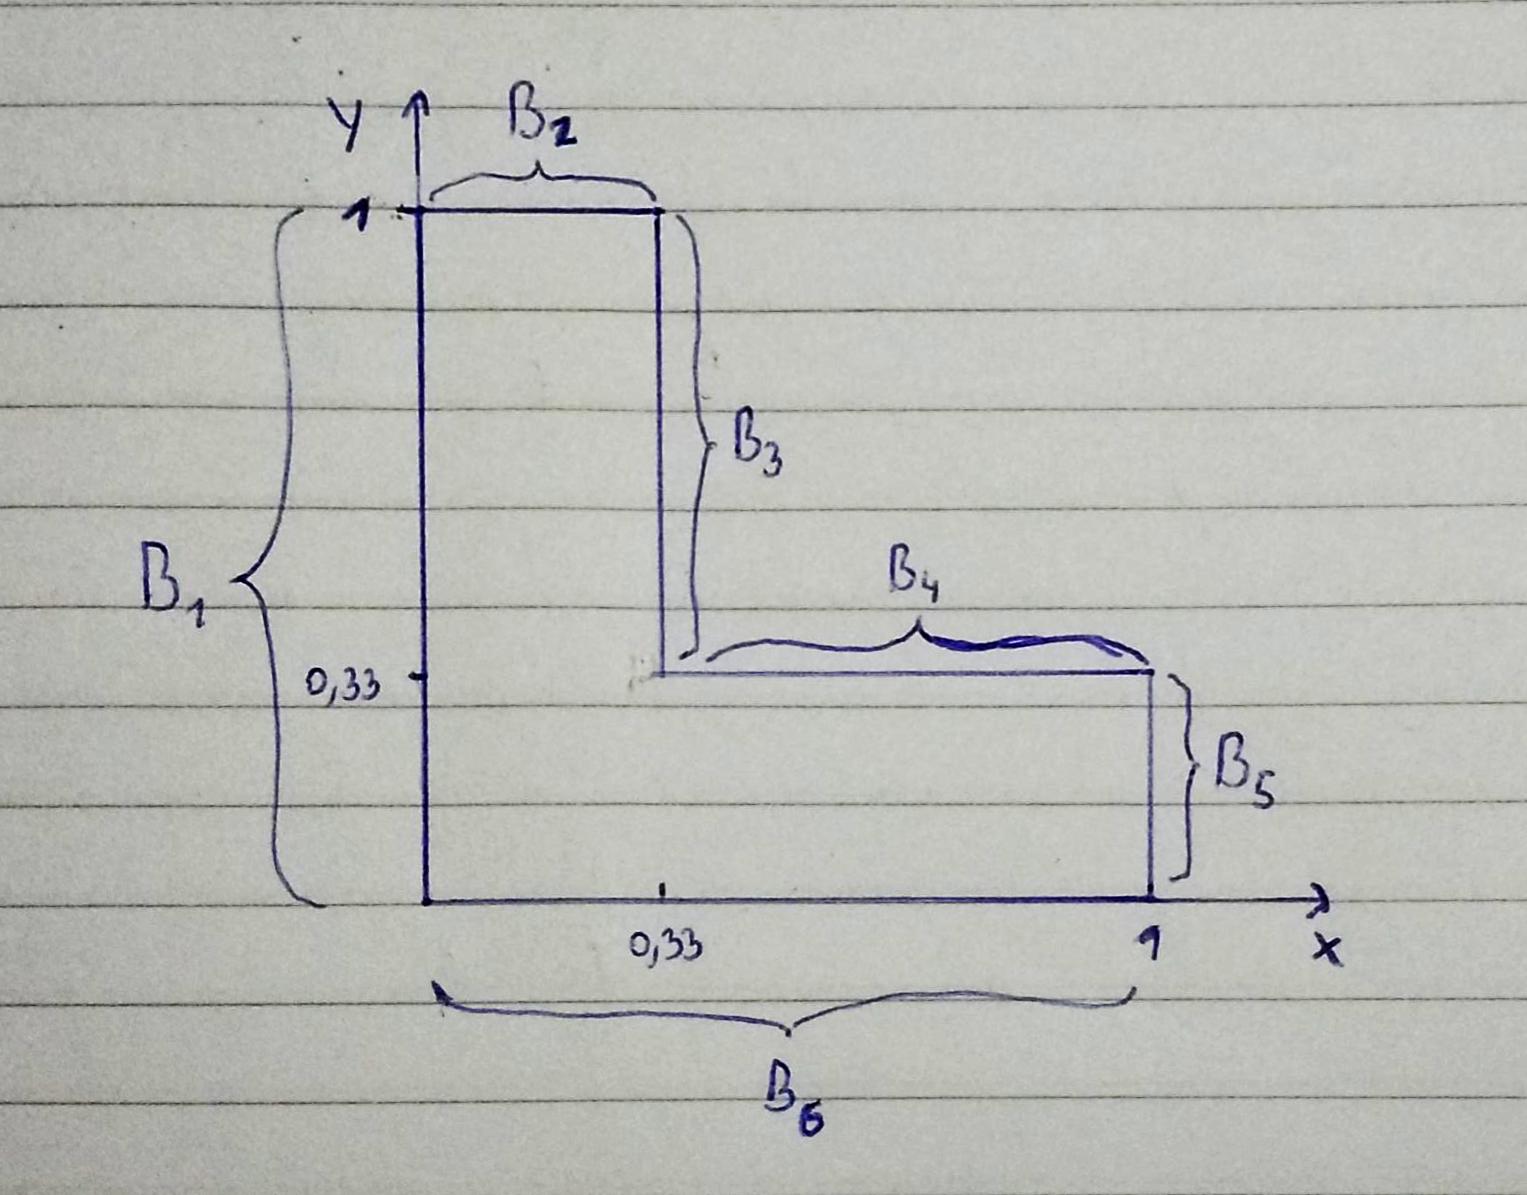 Y
B2
1
B3
B4
B1
0,33
B5
0,33
1
X
B6